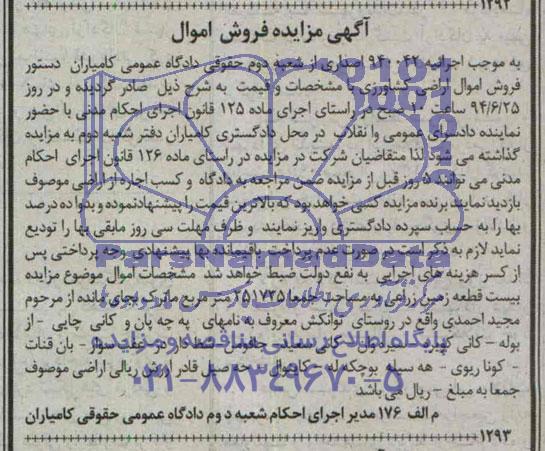 ۱۲۹۲
آگهی مزایده فروش اموال
به موجب اجرائیه ۹۴۰۰۴۲ اصداری از شعبه دوم حقوقی دادگاه عمومی کامیاران دستور
فروش اموال اراضی کشاورزی با مشخصات و قیمت به شرح ذیل صادر گردیده و در روز
۹۴/۶/۲۵ ساعت ۱۰ صبح در راستای اجرای ماده ۱۲۵ قانون اجرای احکام مدنی با حضور
نماینده دادسرای عمومی وا نقلاب در محل دادگستری کامیاران دفتر شعبه دوم به مزایده
گذاشته می شود لذا متقاضیان شرکت در مزایده در راستای ماده ۱۲۶ قانون اجرای احکام
مدنی می توانید ۵ روز قبل از مزایده ضمن مراجعه به دادگاه و کسب اجازه از اراضی موصوف
بازدید نمایند برنده مزایده کسی خواهد بود که بالاترین قیمت را پیشنهاد نموده و بدوا ده درصد
بها را به حساب سپرده دادگستری واریز نمایند و ظرف مهلت سی روز مابقی بها را تودیع
نماید لازم به ذکر است در صورت عدم پرداخت باقیمانده بها پیشنهادی وجه پرداختی پس
از کسر هزینه های اجرایی به نفع دولت ضبط خواهد شد مشخصات اموال موضوع مزایده
بیست قطعه زمین زراعی به مساحت جمعا ۲۵۱۷۳۵ متر مربع ماترک بجای مانده از مرحوم
مجید احمدی واقع در روستای توانکش معروف به نامهای په چه پان و کانی چایی - از
بوله - کانی کهریز - میراول - کانی سعید - - دار - هفت سوار - بان قنات
- کونا ریوی - هه سیله بوچکه له - کاچوال - حه سل قادر ارزش ریالی اراضی موصوف
جمعا به مبلغ - ریال می باشد
م الف ۱۷۶ مدیر اجرای احکام شعبه د وم دادگاه عمومی حقوقی کامیاران
۱۲۹۳
ParsNamadData
پایگاه اطلاع رسانی مناقصه و مزایده
۰۲۱-۸۸۳۴۹۶۷۰-۵